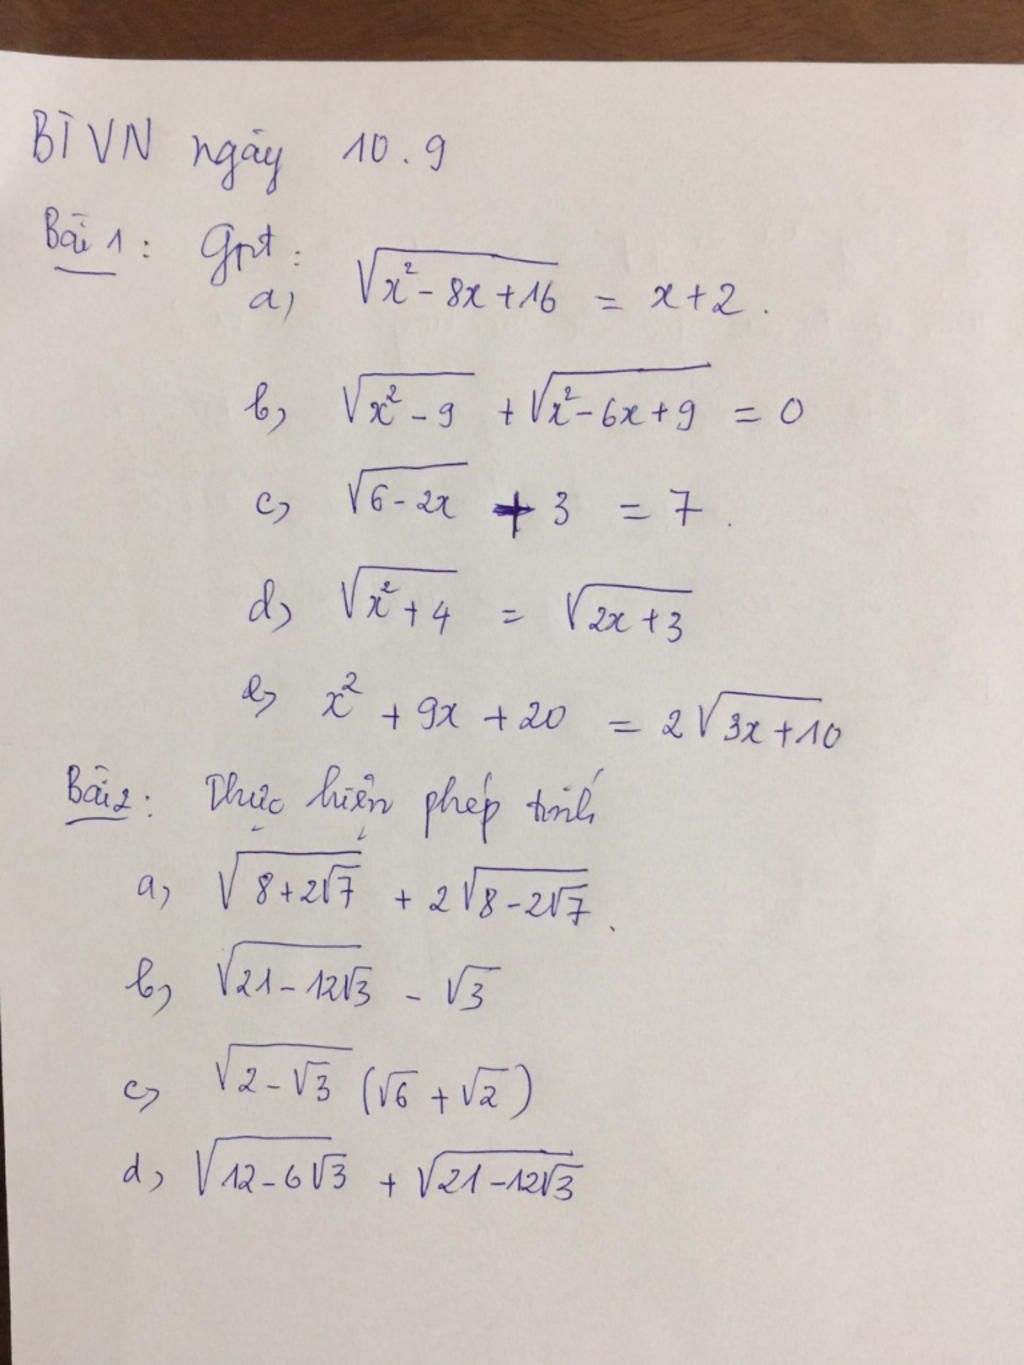 BTVN ngày 10.9
Bài 1: Gpt:
a, √(x² - 8x + 16) = x + 2.
b, √(x² - 9) + √(x² - 6x + 9) = 0
c, √(6 - 2x) + 3 = 7.
d, √(x² + 4) = √(2x + 3)
e, x² + 9x + 20 = 2√(3x + 10)
Bài 2: Thực hiện phép tính
a, √(8 + 2√7) + 2√(8 - 2√7).
b, √(21 - 12√3) - √3
c, √(2 - √3) (√6 + √2)
d, √(12 - 6√3) + √(21 - 12√3)